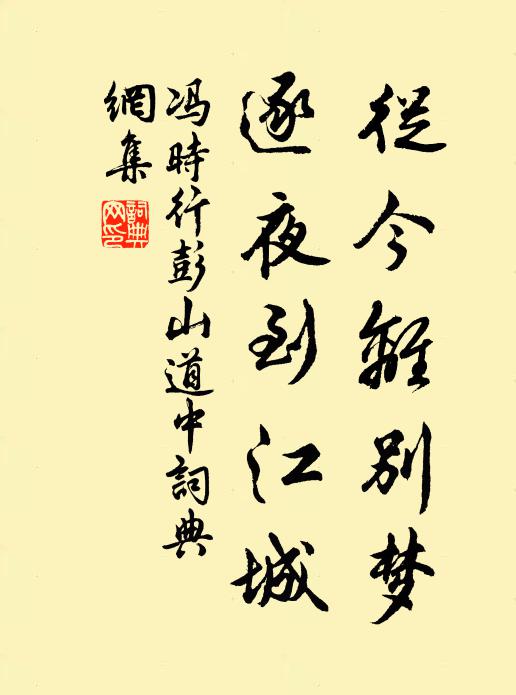 從今離別梦
逐夜到江城
冯時行彭山道中詞典
網集
詞典
网印